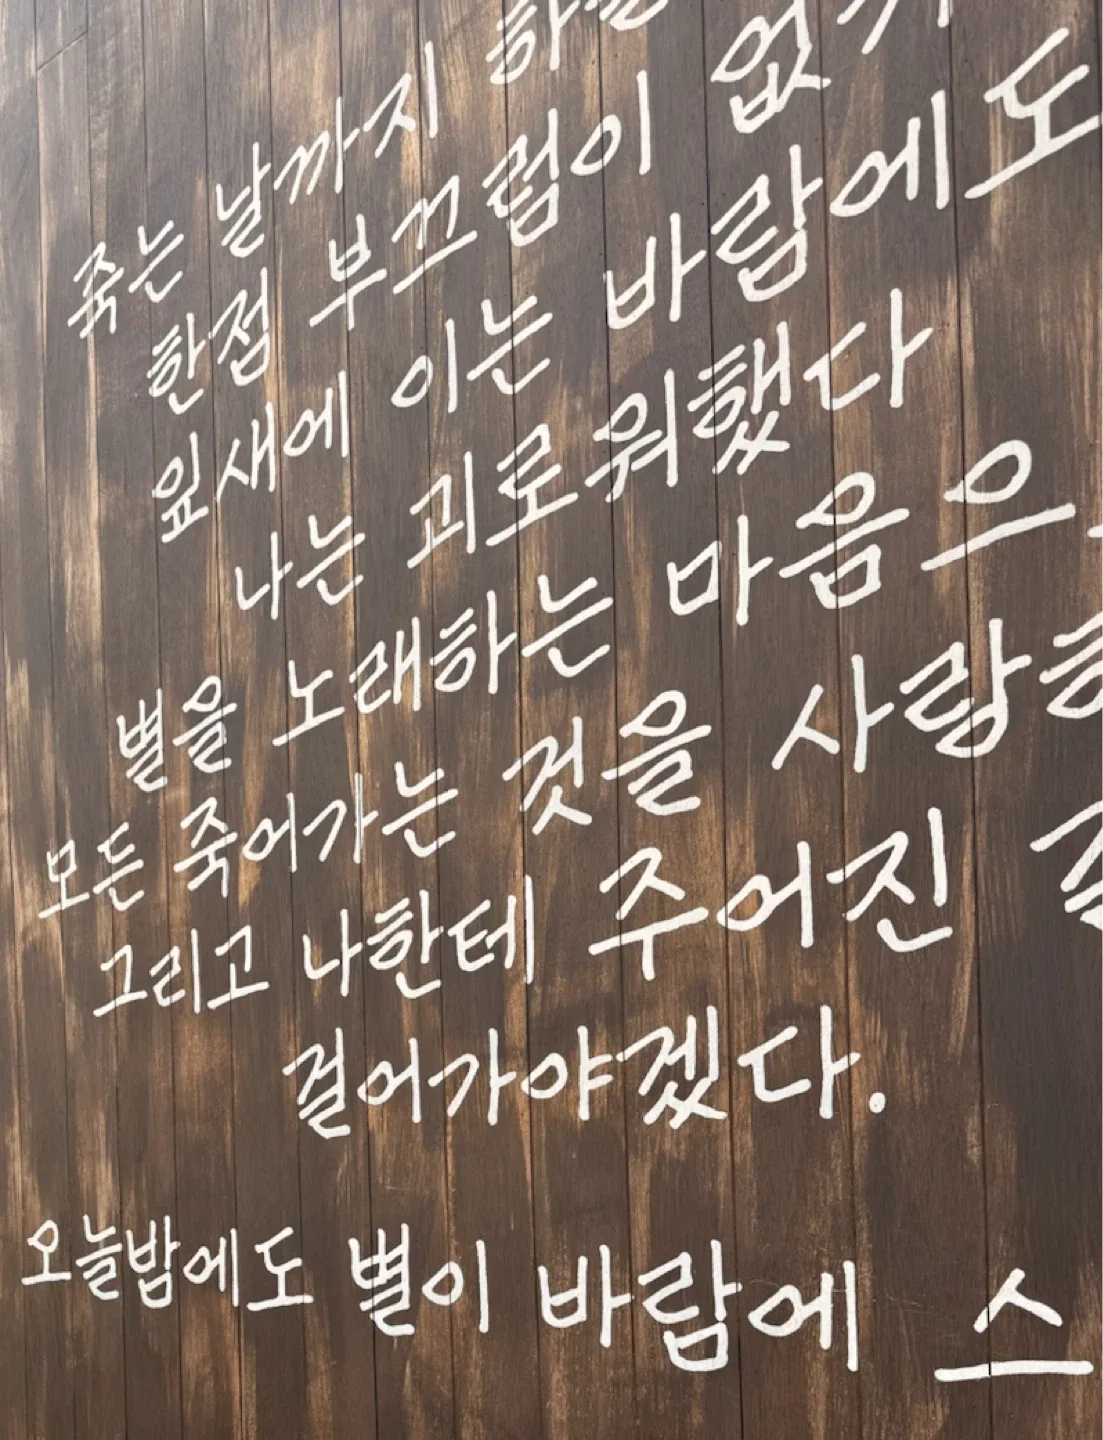 죽는 날까지
한점 부끄럼이
잎새에 이는 바람에도
나는 괴로워했다
별을 노래하는
모든 죽어가는 것을
그리고 나한테 주어진
걸어가야겠다.
오늘밤에도 별이 바람에 스